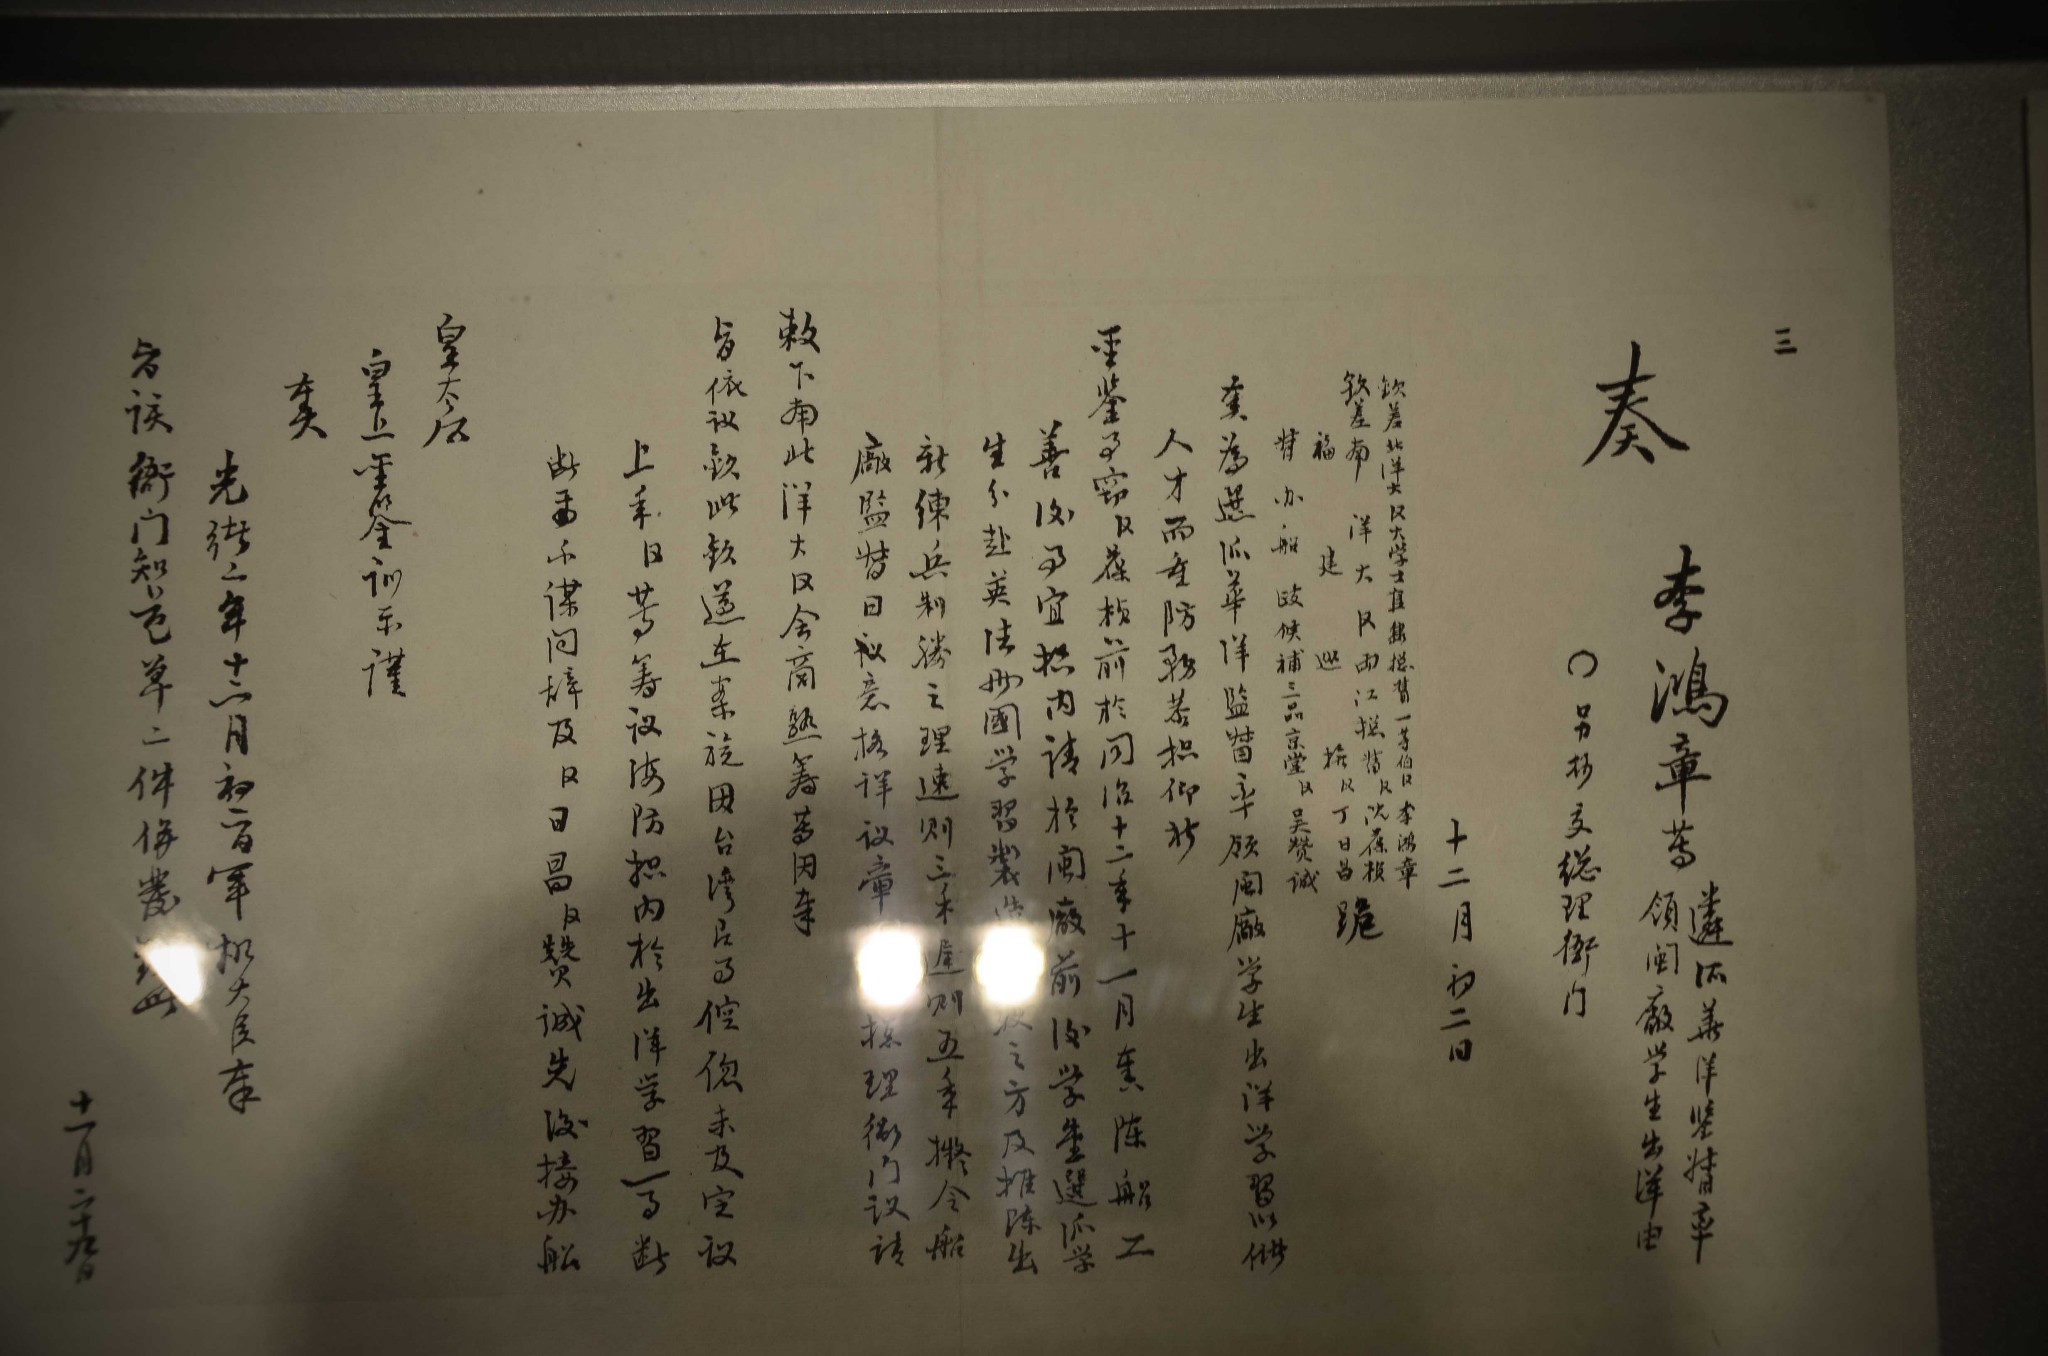 三
奏
李鴻章等
遴派華洋監督率
領闽廠学生出洋由
〇另抄交総理衙门
十二月初二日
钦差北洋大臣大学士直隶総督一等伯臣李鴻章
钦差南洋大臣两江総督臣沈葆桢
福建巡撫臣丁日昌 跪
督办船政候補三品京堂臣吴赞诚
奏為選派華洋監督率领闽廠学生出洋学習以供
人才而重防務恭摺仰祈
聖鉴事窃臣葆桢前於同治十二年十一月奏陈船工
善後事宜摺内请於闽廠前後学堂選派学
生分赴英法两國学習製造驶之方及推陈出
新練兵制勝之理速则三年遲则五年擬令船
廠監督日意格详议章総理衙门议请
敕下南北洋大臣会商熟筹等因奉
旨依议钦此钦遵在案旋因台湾有事倥偬未及定议
上年臣等筹议海防摺内於出洋学習一事断
断不谋同嗣及臣日昌臣赞诚先後接办船
皇太后
皇上聖鉴训示谨
奏
光绪二年十二月初二日军机大臣奉
旨该衙门知道单二件併發钦此
十一月二十九日